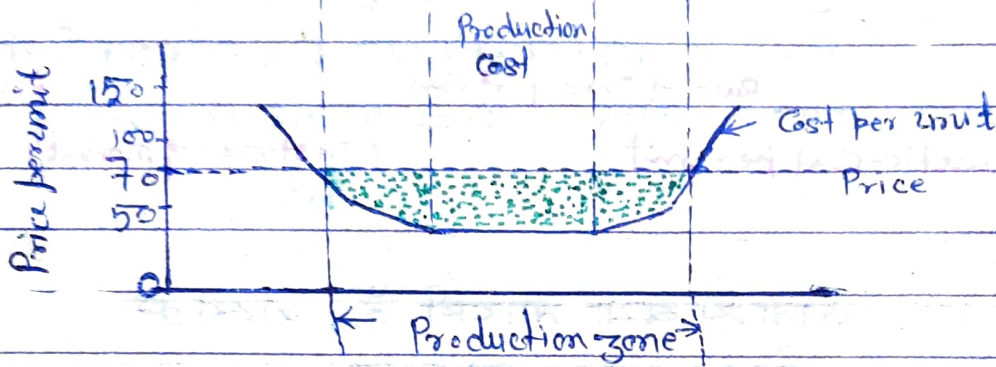 Production
Cost
Price perunit
150
100
70
50
0
Cost per unit
Price
Production zone